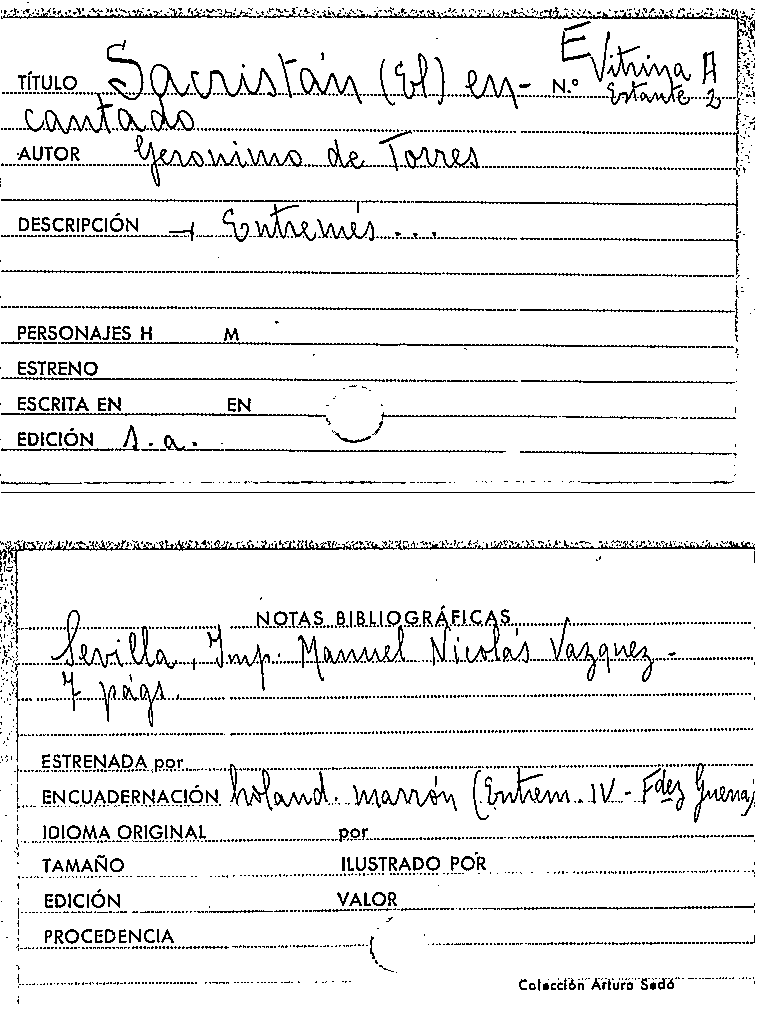 TÍTULO Sacristán (El) en- N.º E Vitrina A
Estante 2
cantado
AUTOR Geronimo de Torres
DESCRIPCIÓN Entremés...
PERSONAJES H M
ESTRENO
ESCRITA EN EN
EDICIÓN s.a.
NOTAS BIBLIOGRÁFICAS
Sevilla, Imp. Manuel Nicolás Vazquez -
7 págs.
ESTRENADA por
ENCUADERNACIÓN holand. marrón (Entrem. IV - Fdez Guerra)
IDIOMA ORIGINAL por
TAMAÑO ILUSTRADO POR
EDICIÓN VALOR
PROCEDENCIA
Colección Arturo Sedó